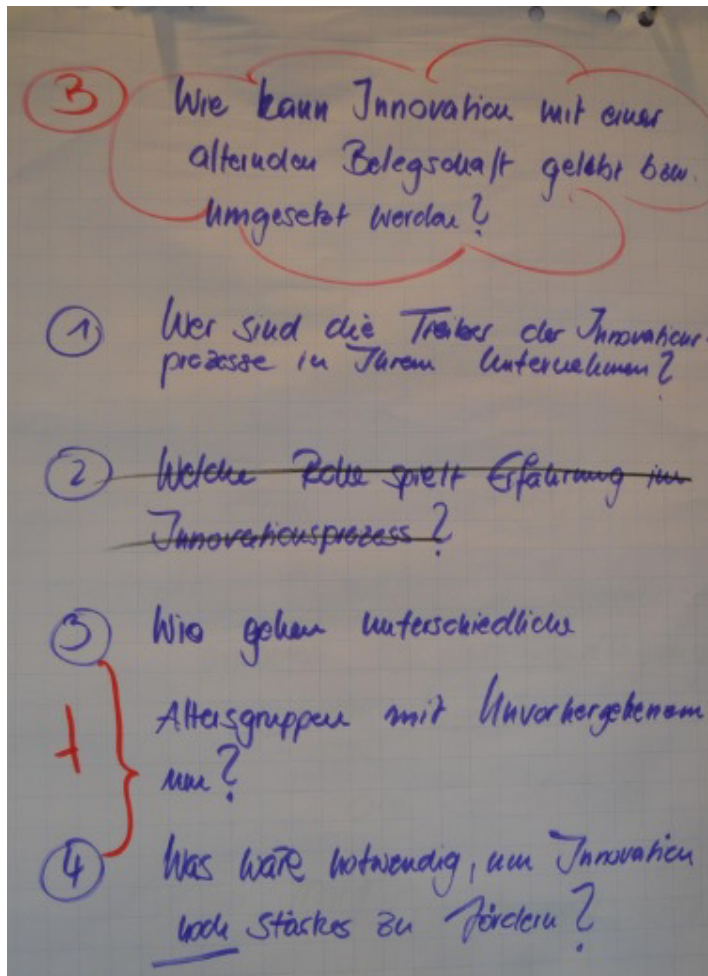 3 Wie kann Innovation mit einer
alternden Belegschaft gelebt bzw.
umgesetzt werden?
1 Wer sind die Treiber der Innovations-
prozesse in Ihrem Unternehmen?
2 Welche Rolle spielt Erfahrung im
Innovationsprozess?
3 Wie gehen unterschiedliche
Altersgruppen mit Unvorhergesehenem
um?
4 Was wäre notwendig, um Innovation
noch stärker zu fördern?